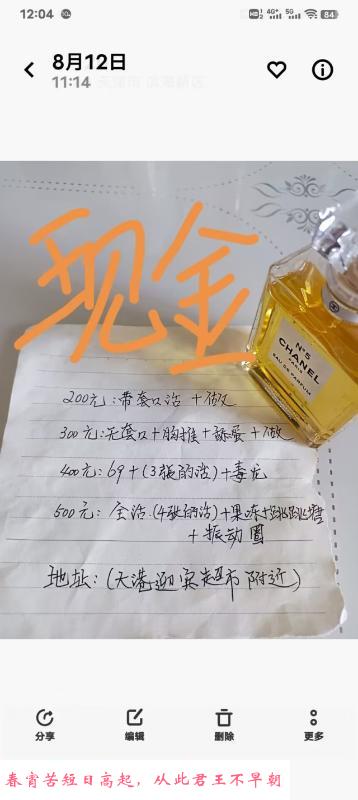 12:04
HD 1 2 4G 5G 84
8月12日
11:14
现金
N°5
CHANEL
PARIS
EAU DE PARFUM
200元:带套口活+做
300元:无套口+胸推+舔蛋+做
400元:69+(3张的活)+毒龙
500元:全活.(4张的活)+果冻+跳跳糖
+振动圈
地址:(大港迎宾超市附近)
分享
编辑
删除
更多
春宵苦短日高起，从此君王不早朝